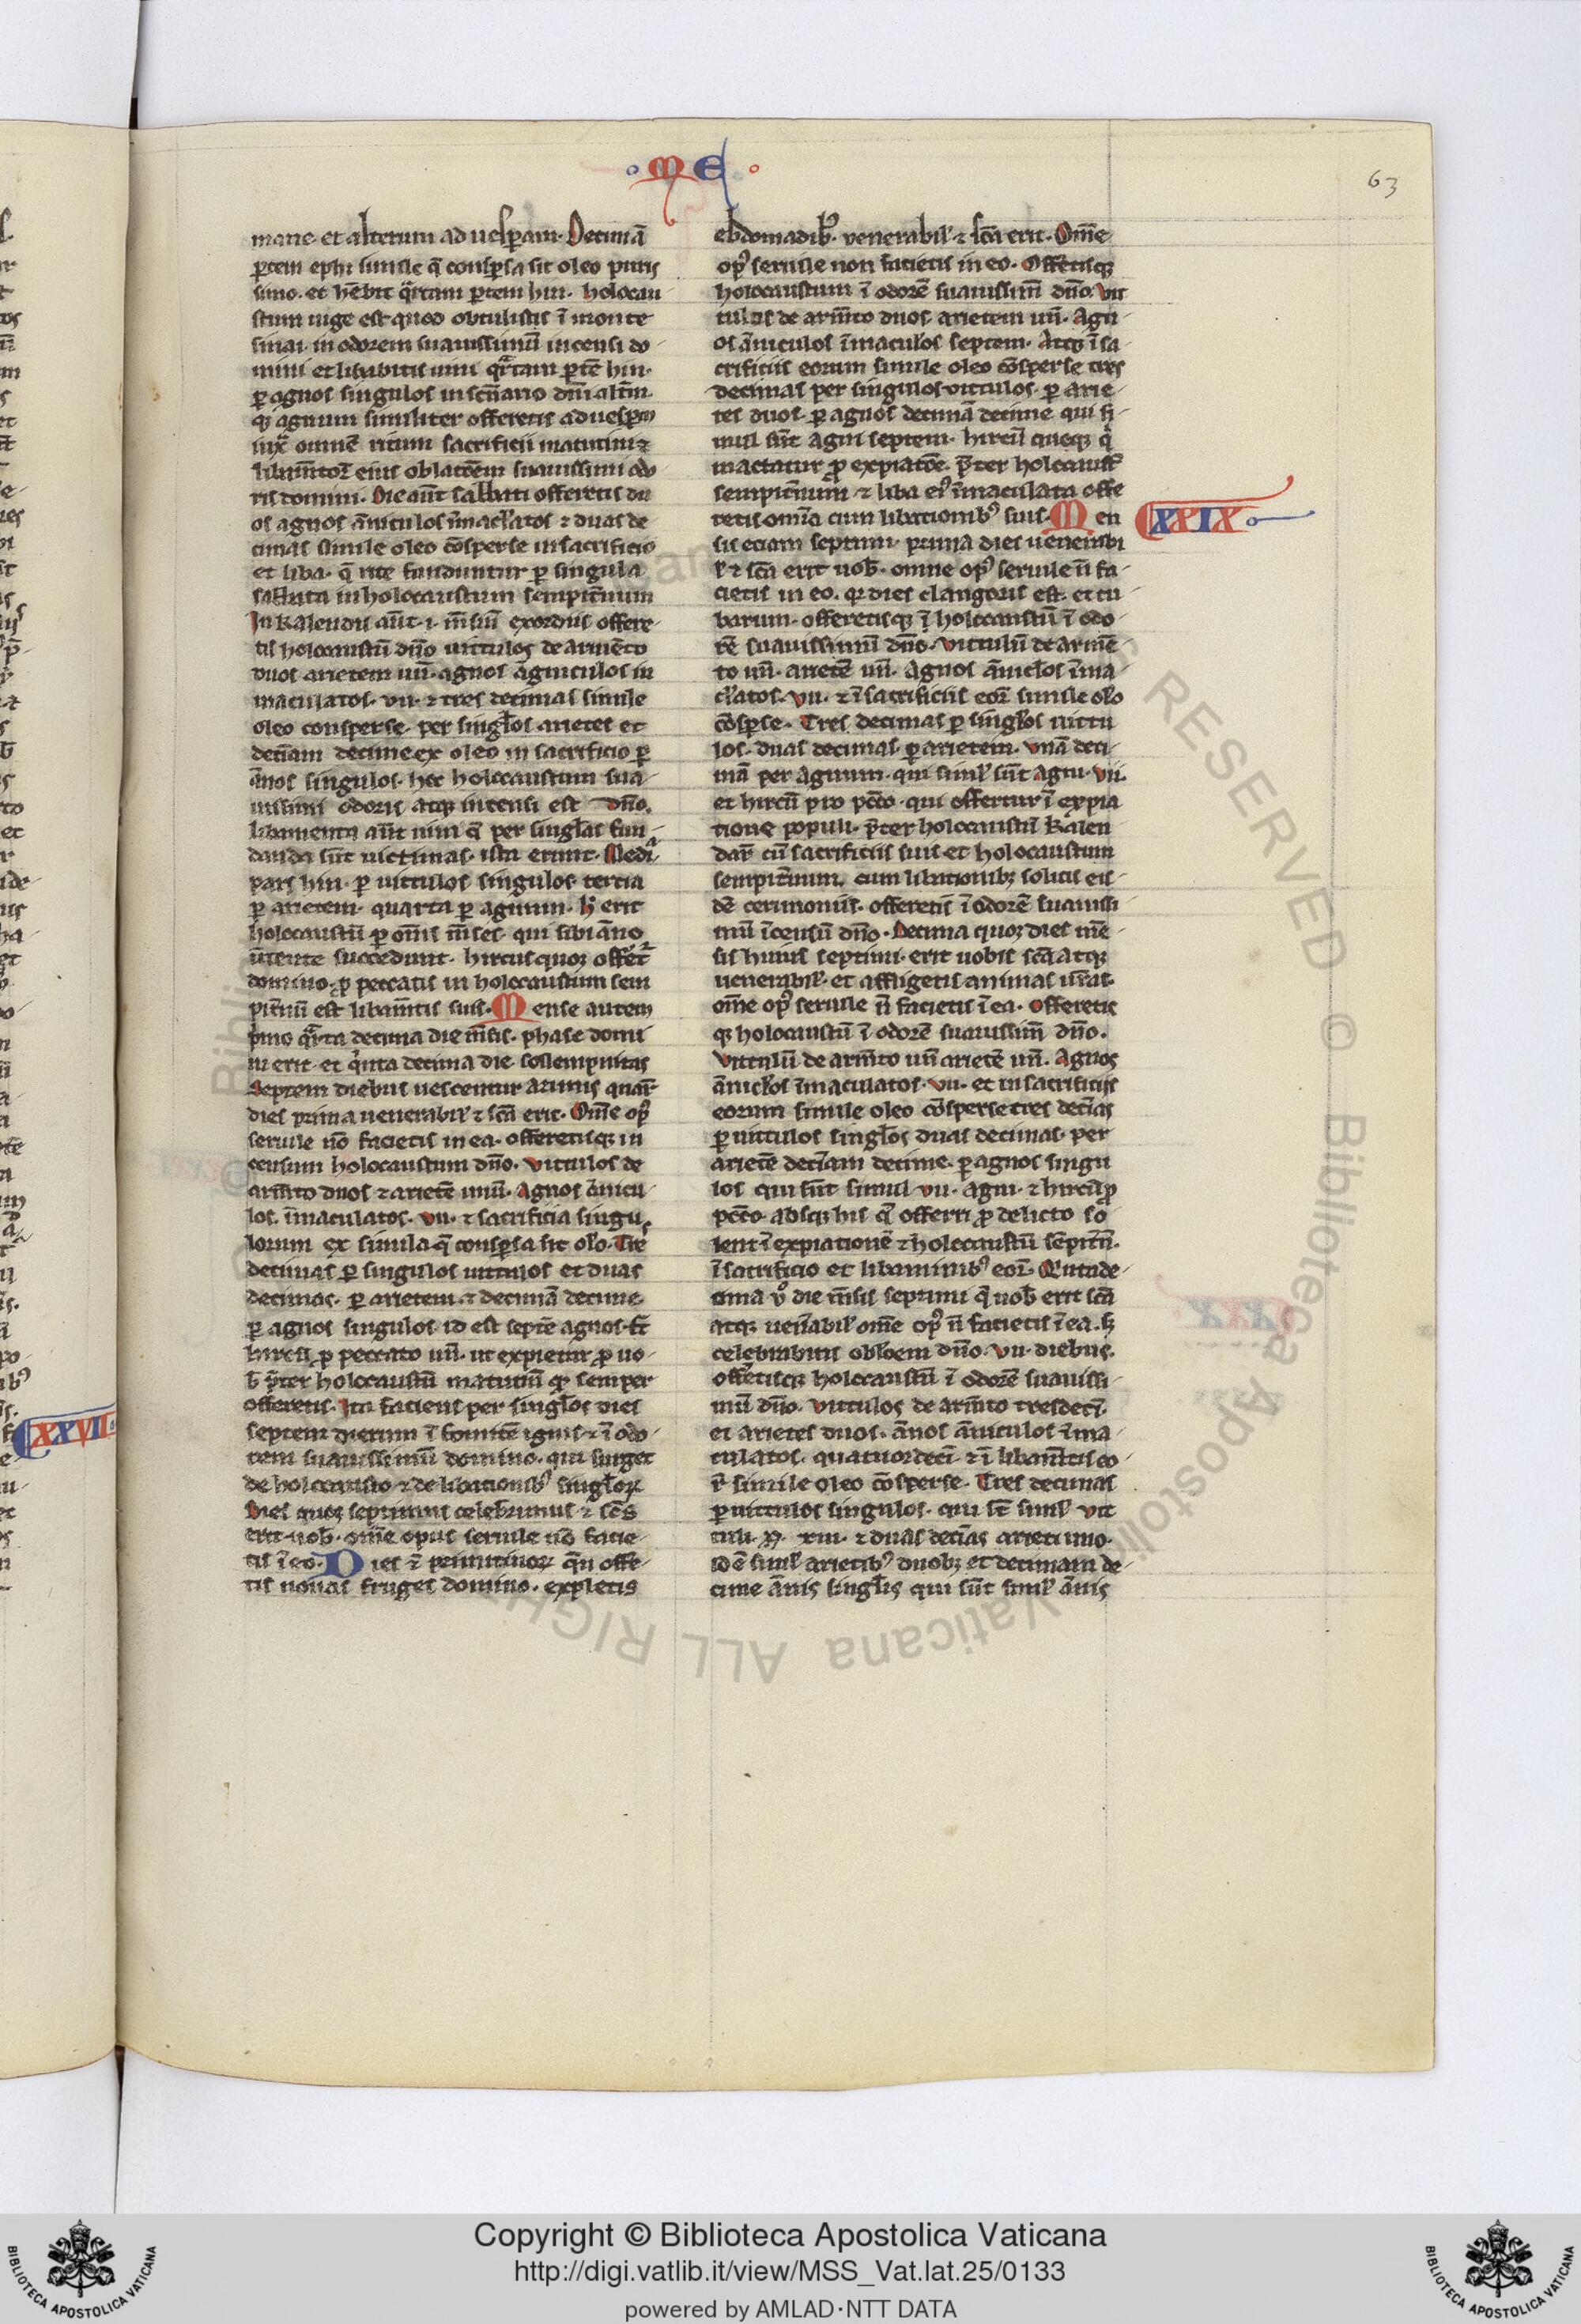 · M E ·
63
mane et alterum ad uesp̄am. Decimā
p̄tem ephi simile q̄ consp̄sa sit oleo puris
simo. et hēbit q̄rtam p̄tem hin. holocau
stum iuge est quod obtulistis ī monte
sinai in odorem suauissimū incensi do
mini et libabitis uini q̄rtam p̄tē hin.
p̄ agnos singulos in scn̄ario dn̄i alt̄m
q; agnum similiter offeretis ad uesp̄am
iuxͣ omnē ritum sacrificii matutini ⁊
libam̄toꝝ eius oblatōem suauissimi odo
ris domini. Die aūt sabbati offeretis du
os agnos āniculos īmac̄latos ⁊ duas de
cimas simile oleo cōsperse in sacrificio
et liba. q̄ rite funduntur p̄ singula
sabbata in holocaustum sempit̄num
In kalendis aūt .i. m̄siū exordiis offere
tis holocaustū dn̄o uitulos de armēto
duos arietem un̄. agnos āgniculos in
maculatos. vii. ⁊ tres decimas simile
oleo consperse. per sinḡlos arietes et
deciam decime ex oleo in sacrificio p̄
ānos singulos. hec holocaustum sua
uissimi odoris atq; incensi est dn̄o.
libamenta aūt uini q̄ per sinḡlas fun
danda sūt uictimas. ista erunt. Mediͣ
pars hin. p̄ uitulos singulos. tercia
p̄ arietem. quarta p̄ agnum. h̄ erit
holocaustū p̄ om̄s m̄ses. qui sibi āno
ūtente succedunt. hircus quoꝫ offēt̄
domino p̄ peccatis in holocaustum sem
pit̄nū est libam̄tis suis. Mense autem
p̄mo q̄rta decima die m̄sis. phase domi
ni erit et q̄nta decima die sollempnitas
Septem diebus uescentur azimis quaꝝ
dies prima uenerabil̄ ⁊ sc̄a erit. Om̄e op̄
seruile nō facietis in ea. offeretisq; in
censum holocaustum dn̄o. vitulos de
arm̄to duos ⁊ arietē unū. Agnos ānicu
los. īmaculatos. vii. ⁊ sacrificia singu
lorum ex simila q̄ consp̄sa sit ol̄o. Tre
decimas p̄ singulos uitulos et duas
decimas. p̄ arietem. ⁊ decimā decime
p̄ agnos singulos. id est septē agnos. ⁊
hircū p̄ peccato un̄. ut expietur p̄ uo
b̄ p̄ter holocaustū matutinū q̄ semper
offeretis. Ita facient per sinḡlos dies
septem dierum ī fomitē ignis. ⁊ ī odo
rem suauissimū domino. qui surget
de holocausto ⁊ de libationib⁹ sinḡloꝝ
Dies quoꝫ septimus celeb̄rimus ⁊ sc̄s
erit uob̄. om̄e opus seruile nō facie
tis ī eo. Dies ē primitiuoꝝ q̄n offe
tis nouas fruges domino. expletis
ebdomadib⁹. venerabil̄ ⁊ sc̄a erit. Om̄e
op⁹ seruile non facietis in eo. Offētisq;
holocaustum ī odorē suauissim̄ dn̄o. vi
tulos de arm̄to duos. arietem un̄. Agn
os āniculos īmaculos septem. Atq; ī sa
crificiis eorum simile oleo cōsperse tres
decimas per singulos vitulos. p̄ arie
tes duos. p̄ agnos decimā decime qui si
mul sūt agni septem. hircū quoq; q̄
mactatur p̄ expiatōe. p̄ter holocaust̄
sempit̄num ⁊ liba ei⁹ īmaculata offe
retis omīa cum libationib⁹ suis. Men
XXIX
sis eciam septimi. prima dies uenerabi
l̄ ⁊ sc̄a erit uob̄. omne op⁹ seruile n̄ fa
cietis in eo. q̄ dies clangoris est. et tu
barum. offeretisq; ī holocaustū ī odo
rē suauissimū dn̄o. vitulū de armē
to un̄. arietē un̄. Agnos ānic̄los īma
c̄latos. vii. ⁊ ī sacrificiis eoꝝ simile ol̄o
cōsp̄se. Tres decimas p̄ sinḡlos uitu
los. duas decimas. p̄ arietem. vnā deci
mā per agnum. qui siml̄ sūt agni. vii.
et hircū pro pc̄co. qui offertur ī expia
tione populi. p̄ter holocaustū kalen
daꝝ cū sacrificiis suis et holocaustum
sempit̄num. cum libationib; solitis eis
dē cerimoniis. offeretis ī odorē suauissi
mū īcensū dn̄o. Decima quoꝫ dies mē
sis huius septimi. erit uobis sc̄a atq;
uenerabil̄. et affligetis animas ur̄as.
om̄e op⁹ seruile n̄ facietis ī ea. Offeretis
q; holocaustū ī odorē suauissim̄ dn̄o.
vitulū de arm̄to un̄ arietē un̄. Agnos
ānic̄los īmaculatos. vii. et in sacrificiis
eorum simile oleo cōsperse tres decīas
p̄ uitulos sinḡlos duas decimas. per
arietē decīam decime. p̄ agnos singu
los qui sūt simul vii. agni. ⁊ hircū p̄
pc̄co. absq; his q̄ offerri p̄ delicto so
lent ī expiationē ⁊ holocaustū sēpit̄n̄.
ī sacrificio et libaminib⁹ eoꝝ. Quitade
cima v̊ die m̄sis septimi q̄ uob̄ erit sc̄a
atq; uen̄abil̄ om̄e op⁹ n̄ facietis ī ea. s;
celebrabitis obl̄oem dn̄o. vii. diebus.
offētisq; holocaustū ī odorē suauissi
mū dn̄o. vitulos de arm̄to tresdecī.
et arietes duos. ānos āniculos īma
culatos. quatuordecī. ⁊ ī libam̄tis eo
ꝝ simile oleo cōsperse. Tres decimas
p̄ uitulos singulos. qui sūt siml̄ vit
tuli. xiii. ⁊ duas decīas arieti uno.
id ē siml̄ arietib⁹ duob; et decimam de
cime ānis sinḡlis qui sūt siml̄ ānis
XXVII
Copyright © Biblioteca Apostolica Vaticana
http://digi.vatlib.it/view/MSS_Vat.lat.25/0133
powered by AMLAD·NTT DATA
BIBLIOTECA APOSTOLICA VATICANA
BIBLIOTECA APOSTOLICA VATICANA